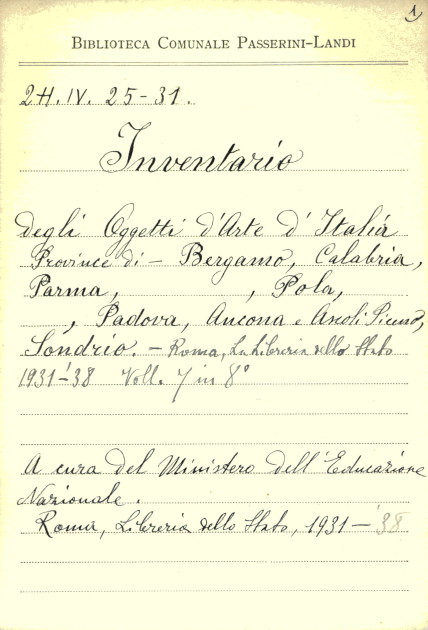 1
BIBLIOTECA COMUNALE PASSERINI-LANDI
2H. IV. 25-31.
Inventario
degli Oggetti d'Arte d'Italia
Province di - Bergamo, Calabria,
Parma, , Pola,
, Padova, Ancona e Ascoli Piceno,
Sondrio. - Roma, La Libreria dello Stato
1931-'38 Voll. 7 in 8°
A cura del Ministero dell'Educazione
Nazionale.
Roma, Libreria dello Stato, 1931-'38